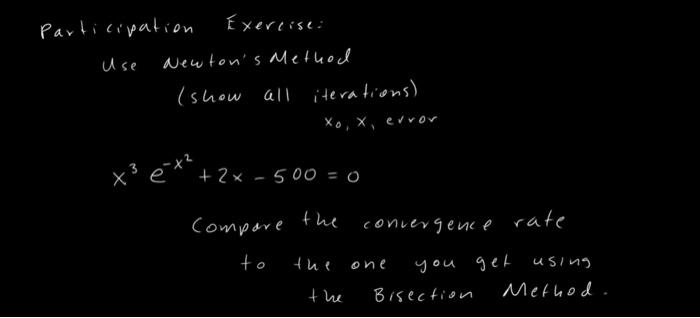 Participation Exercise:
Use Newton's Method
(show all iterations)
x₀, x, error
x³ e^(-x²) + 2x - 500 = 0
Compare the convergence rate
to the one you get using
the Bisection Method.